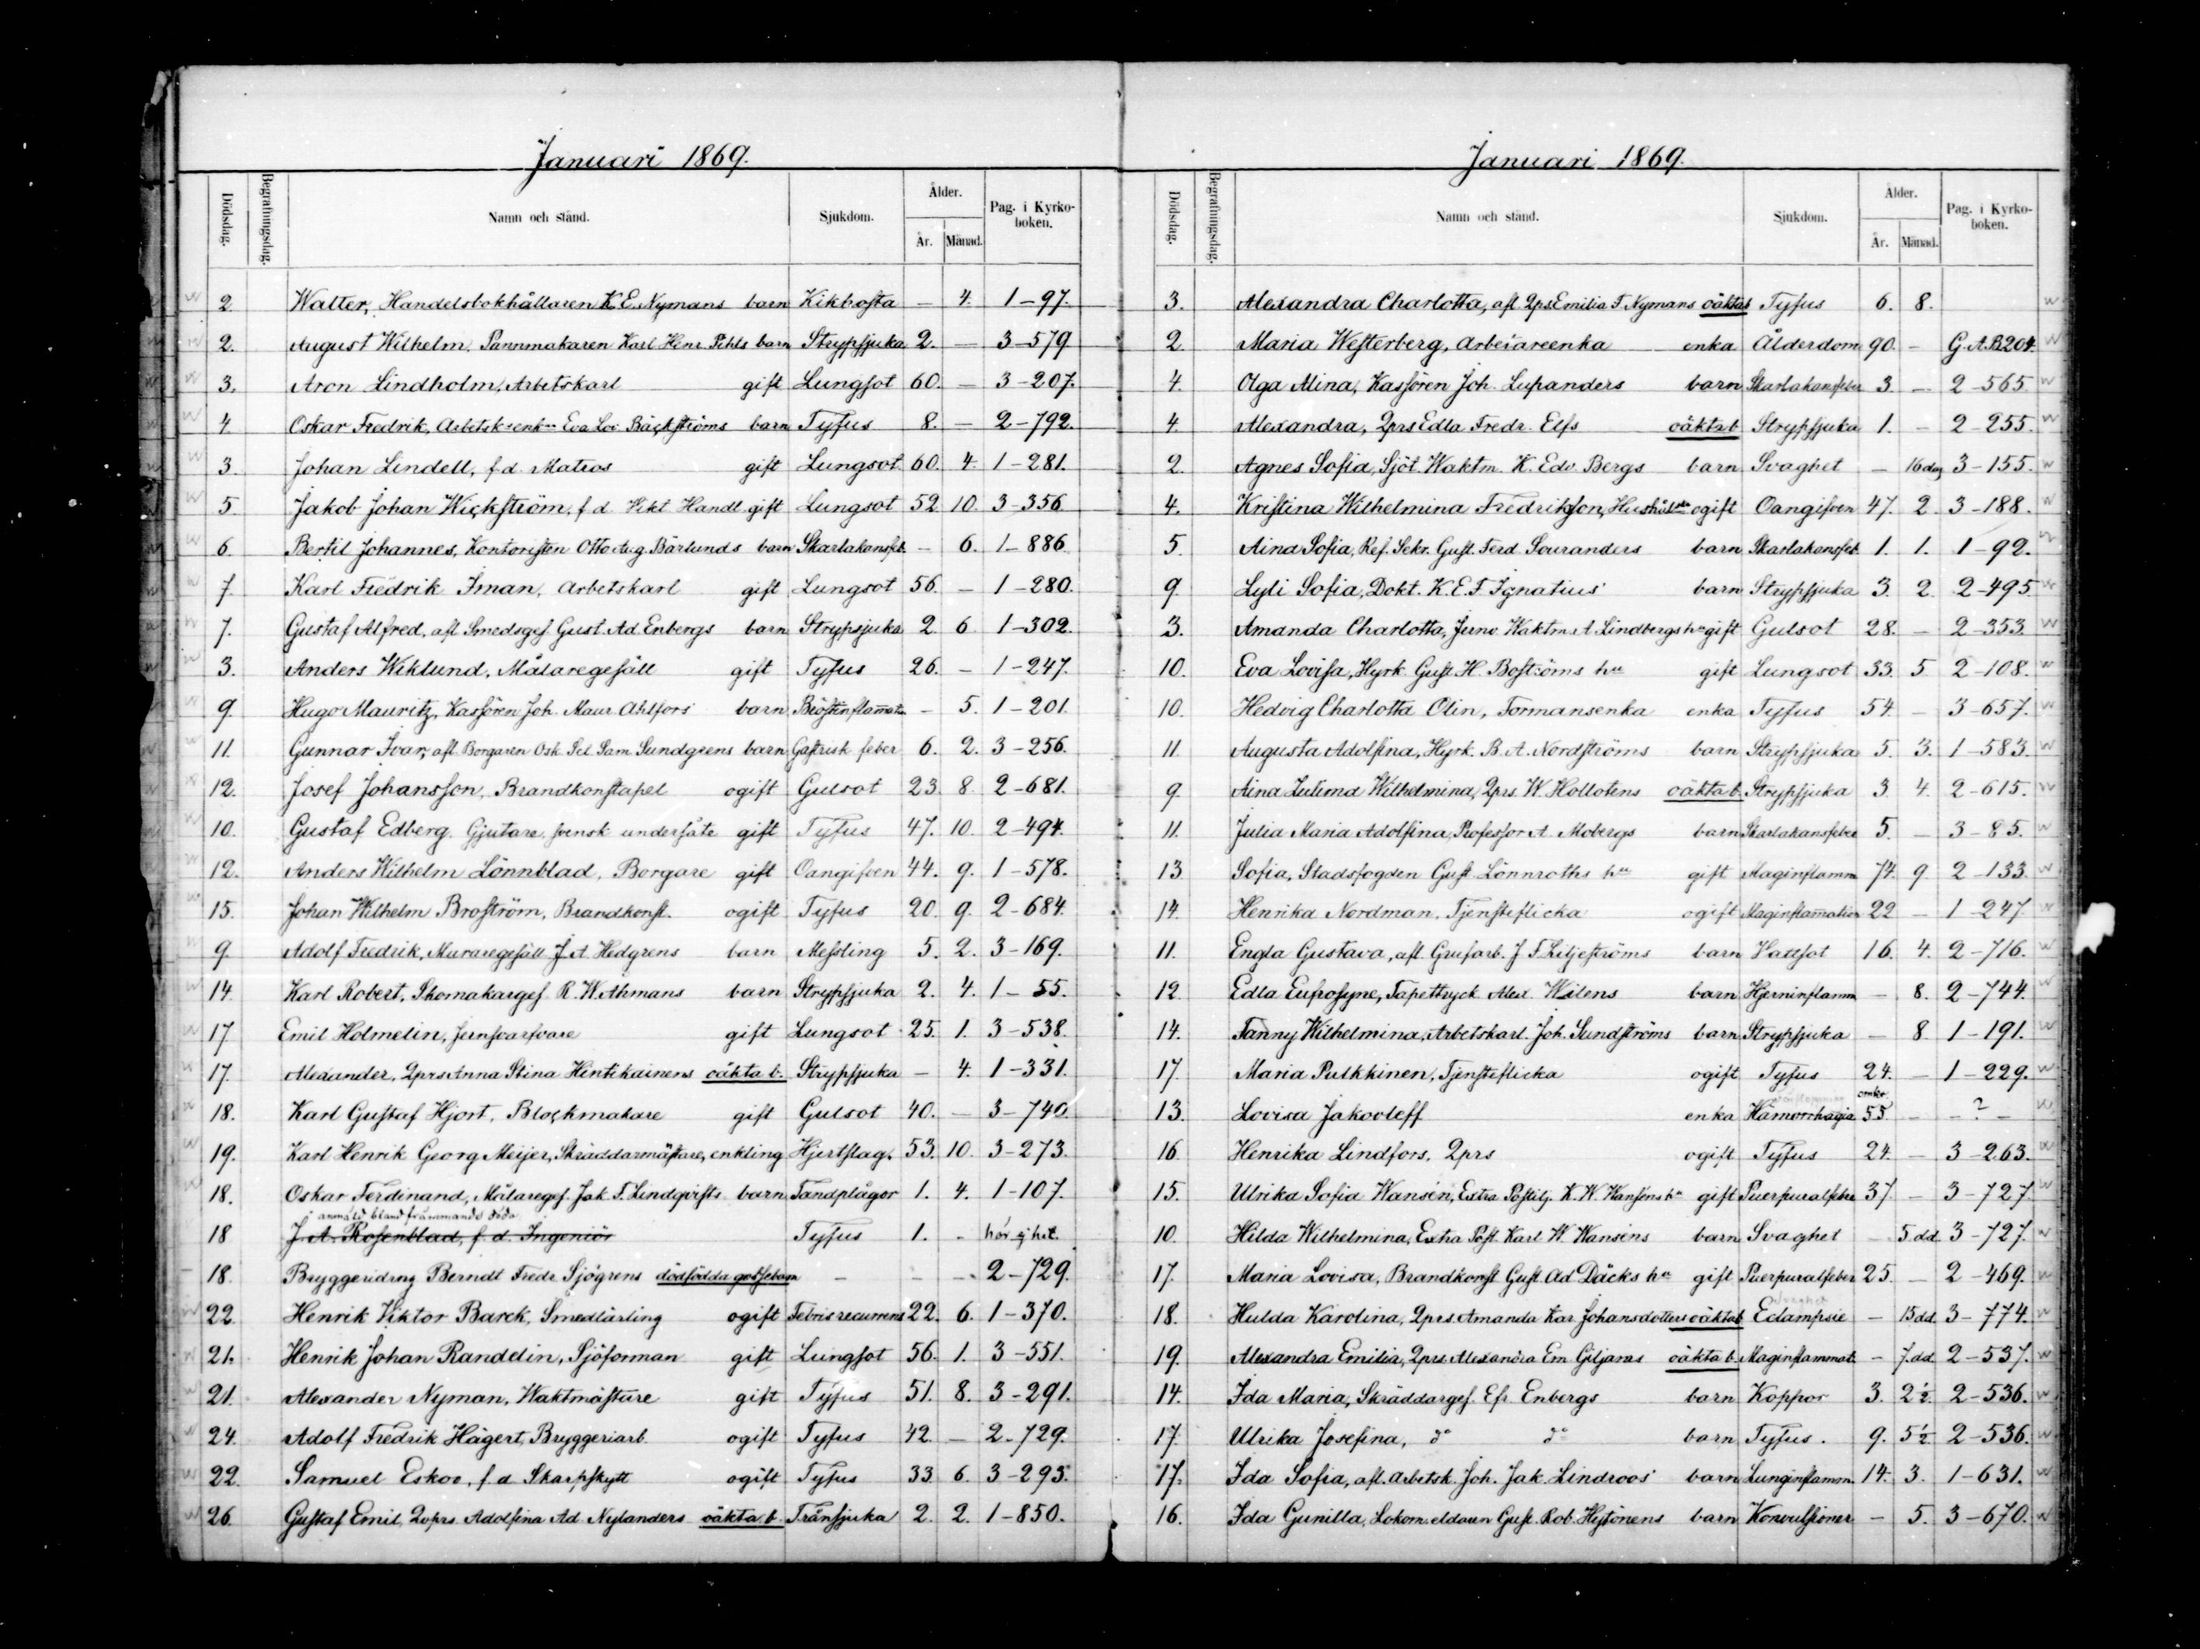 Januari 1869.
Dödsdag. Begrafningsdag. Namn och stånd. Sjukdom. Ålder. År. Månad. Pag. i Kyrkoboken.
2. Walter, Handelsbokhållaren K. E. Nymans barn Kikhosta — 4. 1–97.
2. August Wilhelm, Pannmakaren Karl Henr. Pihls barn Strypsjuka 2. — 3–579
3. Aron Lindholm, Arbetskarl gift Lungsot 60. — 3–207.
4. Oskar Fredrik, Arbetsk:enk:n Eva Lov. Bäckströms barn Tyfus 8. — 2–792.
3. Johan Lindell, f.d. Matros gift Lungsot 60. 4. 1–281.
5. Jakob Johan Wickström, f d Vikt Handl gift Lungsot 52 10. 3–356
6. Bertil Johannes, Kontoristen Otto Aug. Bärlunds barn Skarlakansfeb. — 6. 1–886
7. Karl Fredrik Iman, Arbetskarl gift Lungsot 56. — 1–280.
7. Gustaf Alfred, afl. Smedsges. Gust. Ad. Enbergs barn Strypsjuka 2. 6 1–302.
3. Anders Wiklund, Målaregesäll gift Tyfus 26. — 1–247.
9. Hugo Mauritz, Kassören Joh. Maur. Ahlfors barn Bröstinflamat. — 5. 1–201.
11. Gunnar Ivar, afl. Borgaren Osk. Sel. Sam. Sundgrens barn Gastrisk feber 6. 2. 3–256.
12. Josef Johansson, Brandkonstapel ogift Gulsot 23. 8. 2–681.
10. Gustaf Edberg, Gjutare, svensk undersåte gift Tyfus 47. 10. 2–494.
12. Anders Wilhelm Lönnblad, Borgare gift Oangifven 44. 9. 1–578.
15. Johan Wilhelm Broström, Brandkonst. ogift Tyfus 20. 9. 2–684.
9. Adolf Fredrik, Muraregesäll J. A. Hedgrens barn Messling 5. 2. 3–169.
14. Karl Robert, Skomakarges. R. W. Ahmans barn Strypsjuka 2. 4. 1–55.
17. Emil Holmelin, Jernsvarfvare gift Lungsot 25. 1. 3–538.
17. Alexander, Qprs Anna Stina Hentikainens oäkta b. Strypsjuka — 4. 1–331.
18. Karl Gustaf Hjort, Blockmakare gift Gulsot 40. — 3–740.
19. Karl Henrik Georg Meijer, Skräddarmästare, enkling Hjertslag. 53. 10. 3–273.
18. Oskar Ferdinand, Målareges. Jak. F. Lindqvists barn Tandplågor 1. 4. 1–107.
anmäld bland främmande döda
18 J. A. Rosenblad, f. d. Ingeniör Tyfus 1. - hör ej hit.
18. Bryggeridrng Berndt Fredr. Sjögrens dödfödda gossebarn — — — 2–729.
22. Henrik Viktor Barck, Smedlärling ogift Febris recurrens 22. 6. 1–370.
21. Henrik Johan Randelin, Sjöforman gift Lungsot 56. 1. 3–551.
21. Alexander Nyman, Waktmästare gift Tyfus 51. 8. 3–291.
24. Adolf Fredrik Hägert, Bryggeriarb. ogift Tyfus 42. — 2–729.
22. Samuel Eskov, f. d Skarpskytt ogift Tyfus 33. 6. 3–293.
26. Gustaf Emil, Qvprs. Adolfina Ad. Nylanders oäkta b. Trånsjuka 2. 2. 1–850.
Januari 1869.
Dödsdag. Begrafningsdag. Namn och stånd. Sjukdom. Ålder. År. Månad. Pag. i Kyrkoboken.
3. Alexandra Charlotta, afl. Qprs. Emilia F. Nymans oäkta b Tyfus 6. 8.
2. Maria Westerberg, Arbetareenka enka Ålderdom 90. - G. A. B 204.
4. Olga Alina, Kassören Joh. Lupanders barn Skarlakansfeber 3. — 2–565.
4. Alexandra, Qprs Edla Fredr. Elfs oäkta b Strypsjuka 1. - 2–255.
2. Agnes Sofia, Sjöt. Waktm. K. Edv. Bergs barn Svaghet — 16 dag 3–155.
4. Kristina Wilhelmina Fredriksson, Hushåll:ka ogift Oangifven 47. 2. 3–188.
5. Aina Sofia, Ref. Sekr. Gust. Ferd. Souranders barn Skarlakansfeb. 1. 1. 1–92.
9. Lyli Sofia, Dokt. K. E. F. Ignatius barn Strypsjuka 3. 2. 2–495
3. Amanda Charlotta, Jernv. Waktm. A. Lindbergs h:u gift Gulsot 28. — 2–353.
10. Eva Lovisa, Hyrk. Gust. H. Boströms h:u gift Lungsot 33. 5 2–108.
10. Hedvig Charlotta Olin, Formansenka enka Tyfus 54. — 3–657.
11. Augusta Adolfina, Hyrk. B. A. Nordströms barn Strypsjuka 5. 3. 1–583.
9. Aina Wilhelmina, Qprs. W. Hollotens oäkta b. Strypsjuka 3 4. 2–615.
11. Julia Maria Adolfina, Professor A. Mobergs barn Skarlakansfeber 5. — 3–85.
13 Sofia, Stadsfogden Gust. Lönnroths h:u gift Maginflamm. 74. 9 2–133.
14. Henrika Nordman, Tjensteflicka ogift Maginflammation 22 — 1–247
11. Engla Gustava, afl. Grufarb. J. F. Liljeströms barn Vattsot 16. 4. 2–716.
12. Edla Eufrosyne, Tapettryck. Alex. Wilens barn Hjerninflamm — 8. 2–744.
14. Fanny Wilhelmina, Arbetskarl. Joh. Sundströms barn Strypsjuka — 8 1–191.
17. Maria Pulkkinen, Tjensteflicka ogift Tyfus 24. — 1–229.
13. Lovisa Jakovleff enka Hämorrhagia cirka 55 — – ? –
16. Henrika Lindfors, Qprs ogift Tyfus 24. — 3–263.
15. Ulrika Sofia Wansén, Extra Postilj. K. W. Wanséns h:u gift Puerpuralfeber 37. — 3–727.
10. Hilda Wilhelmina, Extra Post. Karl W. Wanséns barn Svaghet 5 dd. 3–727.
17. Maria Lovisa, Brandkonst Gust. Ad Däcks h:u gift Puerpuralfeber 25. — 2–469.
18. Hulda Karolina, Qprs. Amanda Kar. Johansdotters oäkta b Eclampsie — 15 dd. 3–774.
19. Alexandra Emilia, Qprs. Alexandra Em. Giljams oäkta b. Maginflammat. — 7. dd. 2–537.
14. Ida Maria, Skräddarges. Efr. Enbergs barn Koppor 3. 2½. 2–536.
17. Ulrika Josefina, d:o d:o barn Tyfus. 9. 5½ 2–536.
17. Ida Sofia, afl. Arbetsk. Joh. Jak. Lindroos barn Lunginflamm. 14. 3. 1–631.
16. Ida Gunilla, Lokom. eldaren Gust. Rob. Heftönens barn Konvulsioner — 5. 3–670.